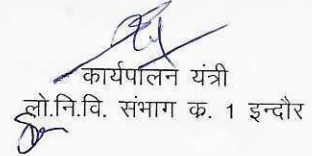 कार्यपालन यंत्री
लो.नि.वि. संभाग क. 1 इन्दौर